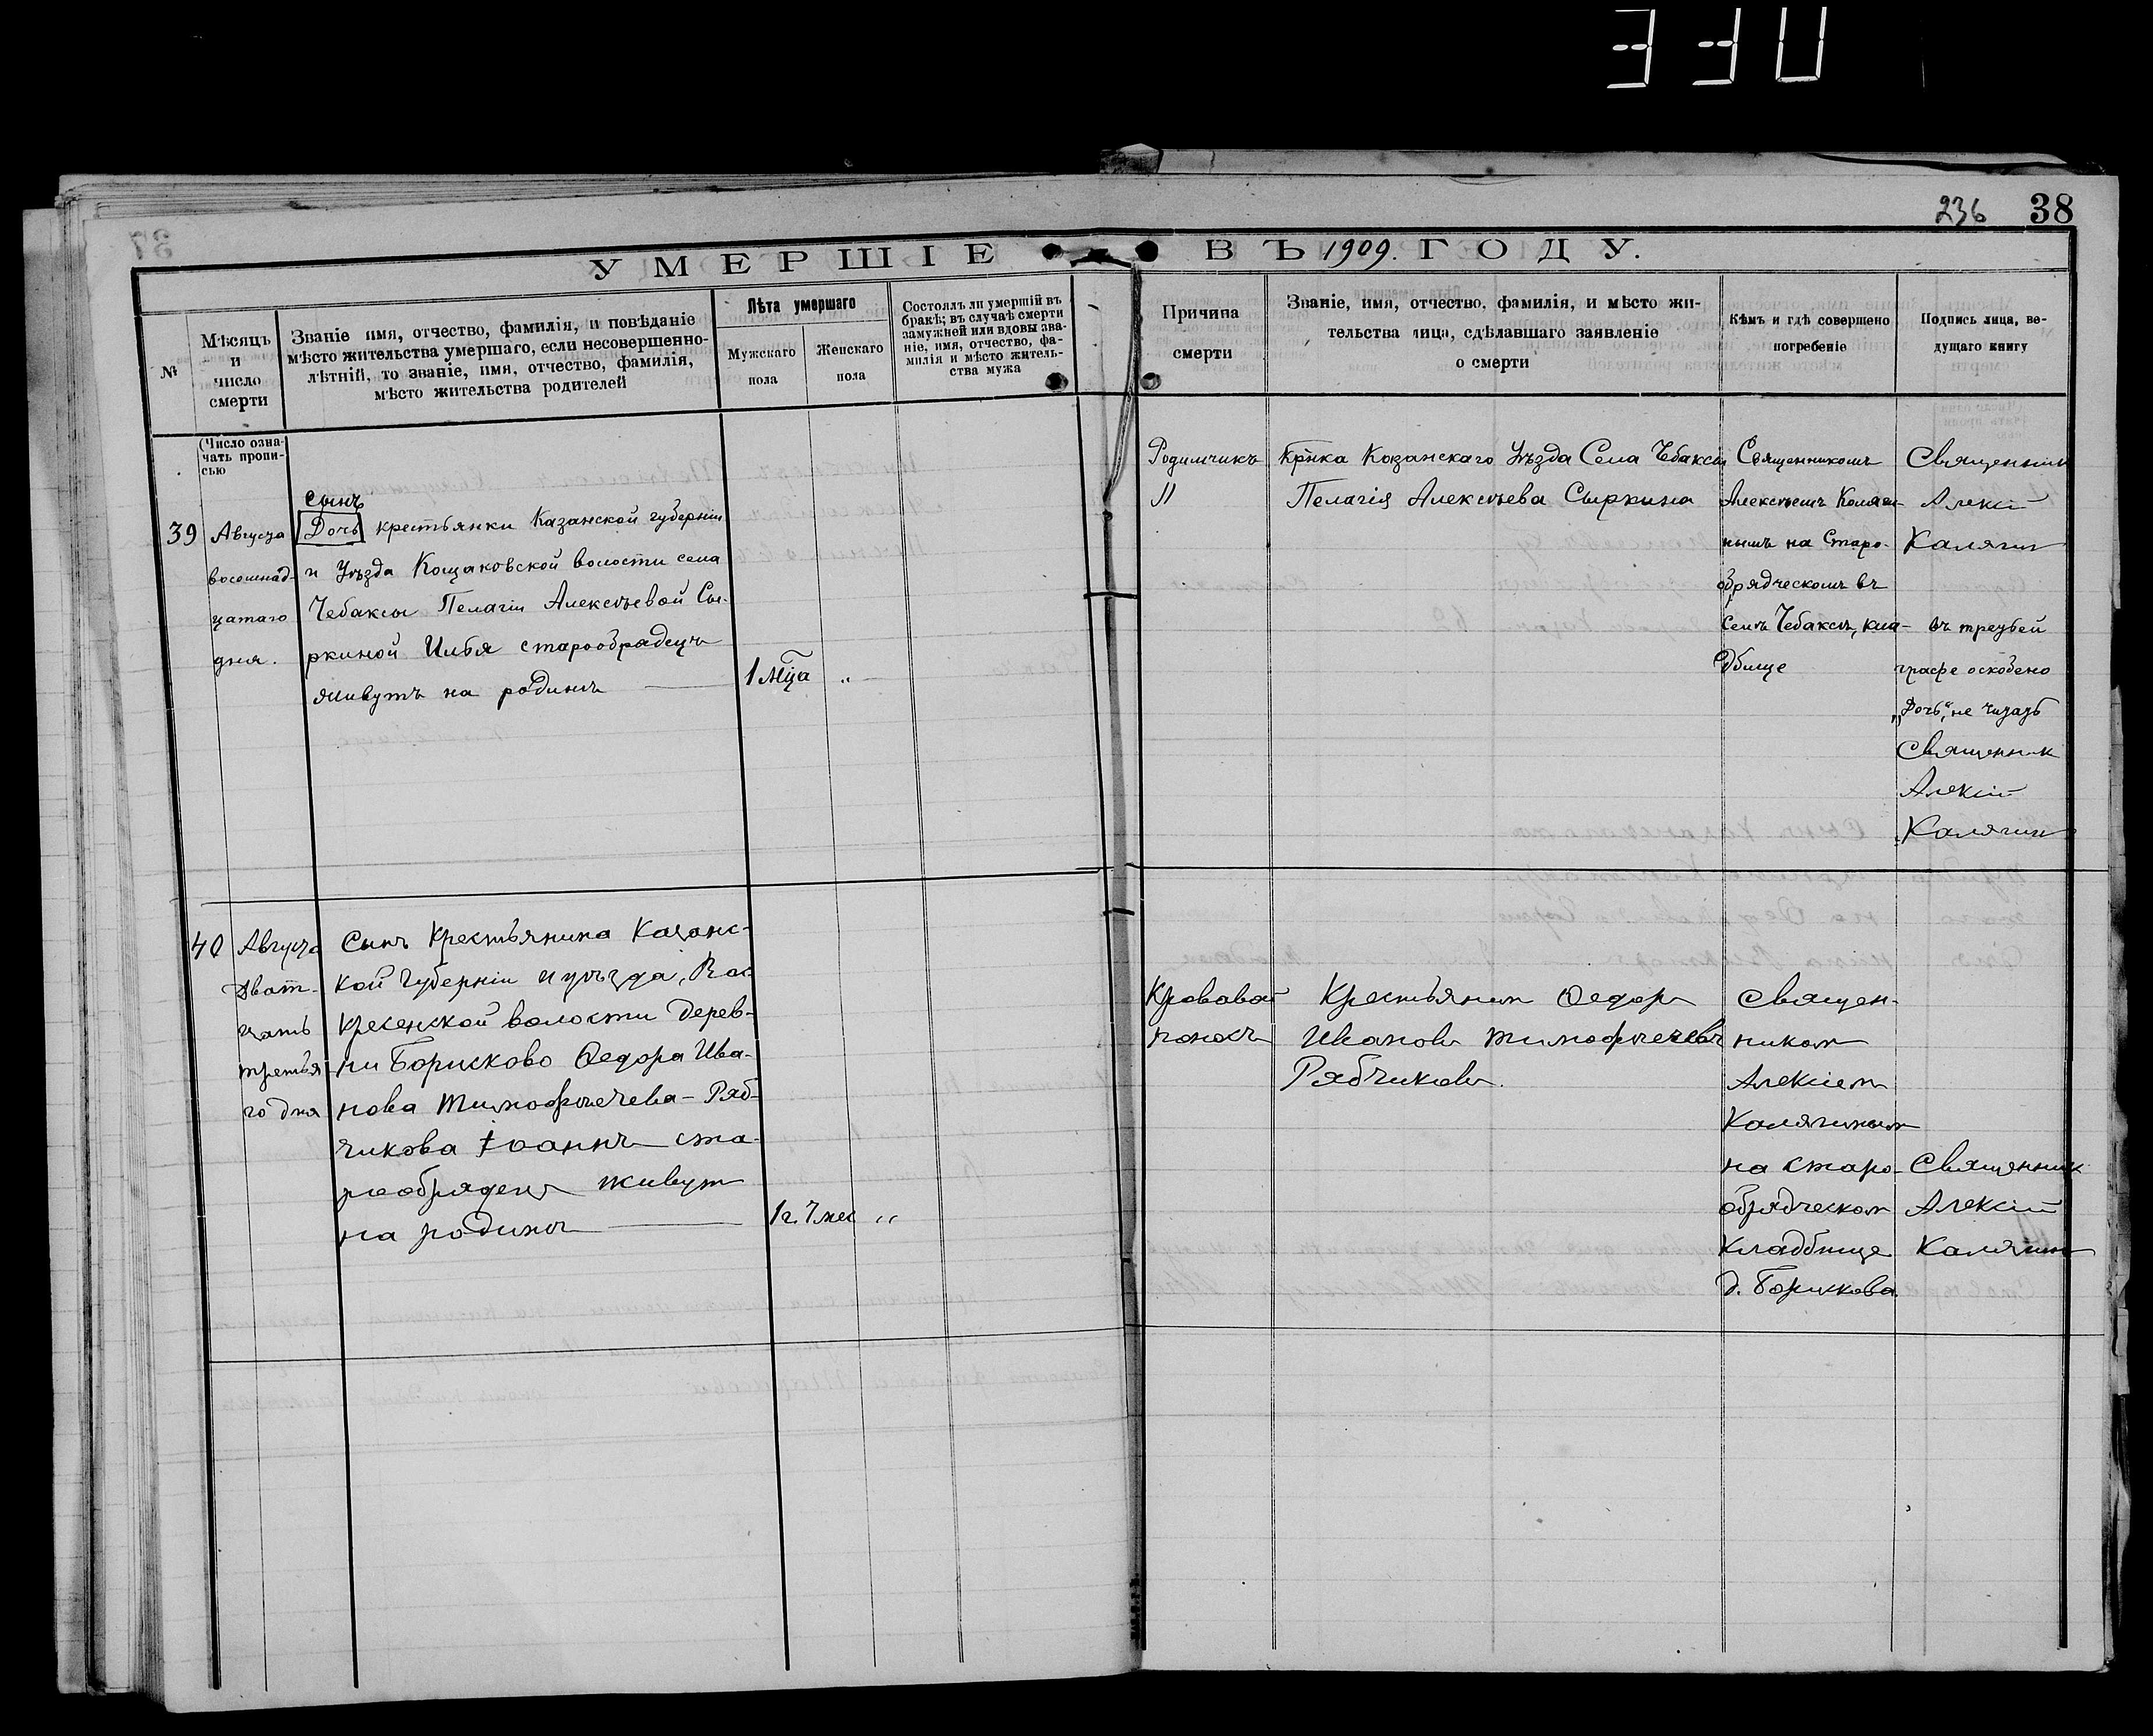 330
236 38
УМЕРШІЕ ВЪ 1909. ГОДУ.
№
Мѣсяцъ
и
число
смерти
Званіе имя, отчество, фамилія, и повѣданіе
мѣсто жительства умершаго, если несовершенно-
лѣтній, то званіе, имя, отчество, фамилія,
мѣсто жительства родителей
Лѣта умершаго
Мужскаго
пола
Женскаго
пола
Состоялъ ли умершій въ
бракѣ; въ случаѣ смерти
замужней или вдовы зва-
ніе, имя, отчество, фа-
милія и мѣсто житель-
ства мужа
Причина
смерти
Званіе, имя, отчество, фамилія, и мѣсто жи-
тельства лица, сдѣлавшаго заявленіе
о смерти
Кѣмъ и гдѣ совершено
погребеніе
Подпись лица, ве-
дущаго книгу
(Число озна-
чать пропи-
сью
39
Августа
восемнад-
цатаго
дня.
сынъ
Дочь крестьянки Казанской губерніи
и Уѣзда Кощаковской волости села
Чебаксы Пелагіи Алексѣевой Сы-
ркиной Илья старообрядецъ
живутъ на родинѣ
1 мца "
Родимчикъ
"
Крнка Козанскаго Уѣзда Села Чебаксы
Пелагія Алексѣева Сыркина
Священникомъ
Алексѣемъ Каляги-
нымъ на Старо-
обрядческомъ въ
селѣ Чебаксы, кла-
дбище
Священник
Алексій
Калягин
въ третьей
графе оскоблено
"Дочь", не читать
Священник
Алексій
Калягин
40
Августа
Дват-
цать
третья
го дня
Сынъ Крестьянина Казанс-
кой губерніи и уѣзда, Вос
кресенской волости дерев-
ни Борисково Ѳедора Ива-
нова Тимофѣечева - Ряб-
чикова Іоаннъ ста-
рообрядецъ живут
на родинѣ
1 г. 7 мес "
Кровавой
поносъ
Крестьянин Ѳедоръ
Ивановъ Тимофѣечевъ
Рябчиковъ.
Священ-
никомъ
Алексіем
Калягиным
на старо-
обрядческом
кладбище
д. Борискова.
Священник
Алексій
Калягин